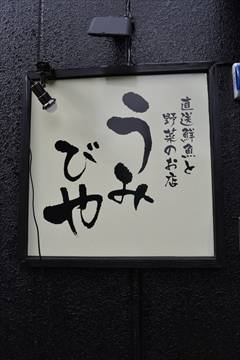 直送鮮魚と
野菜のお店
うみ
びや